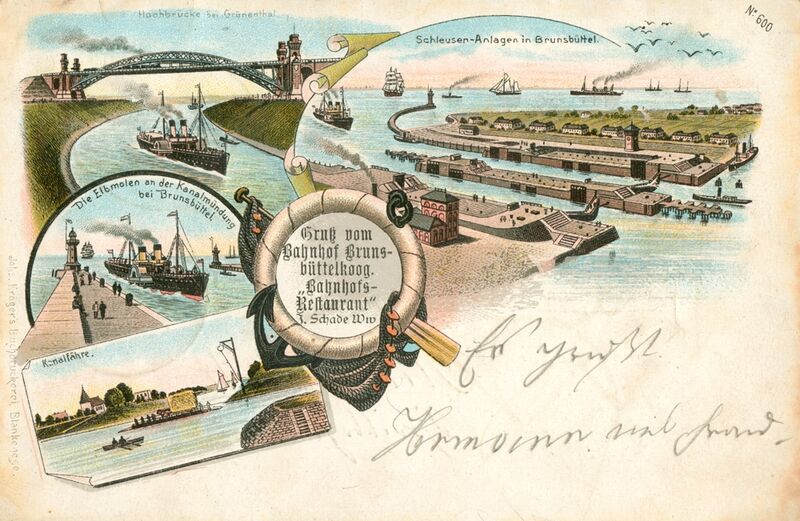 Hochbrücke bei Grünenthal
Schleusen-Anlagen in Brunsbüttel.
No 600
Die Elbmolen an der Kanalmündung
bei Brunsbüttel.
Gruß vom
Bahnhof Bruns-
büttelkoog.
„Bahnhofs-
Restaurant“
J. Schade Ww
Kanalfähre.
Joh. Kröger's Buchdruckerei, Blankenese.
Es grüßt
Hermann